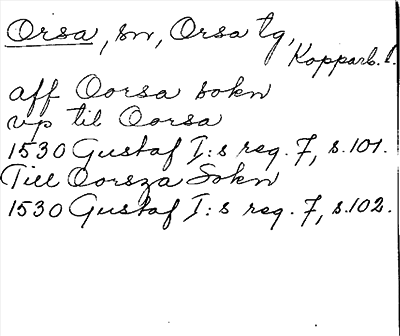 Orsa, sn, Orsa tg,
Kopparb. l.
aff Oorsa sokn
vp til Oorsa
1530 Gustaf I:s reg. 7, s.101.
Till Oorsza Sokn
1530 Gustaf I:s reg. 7, s.102.